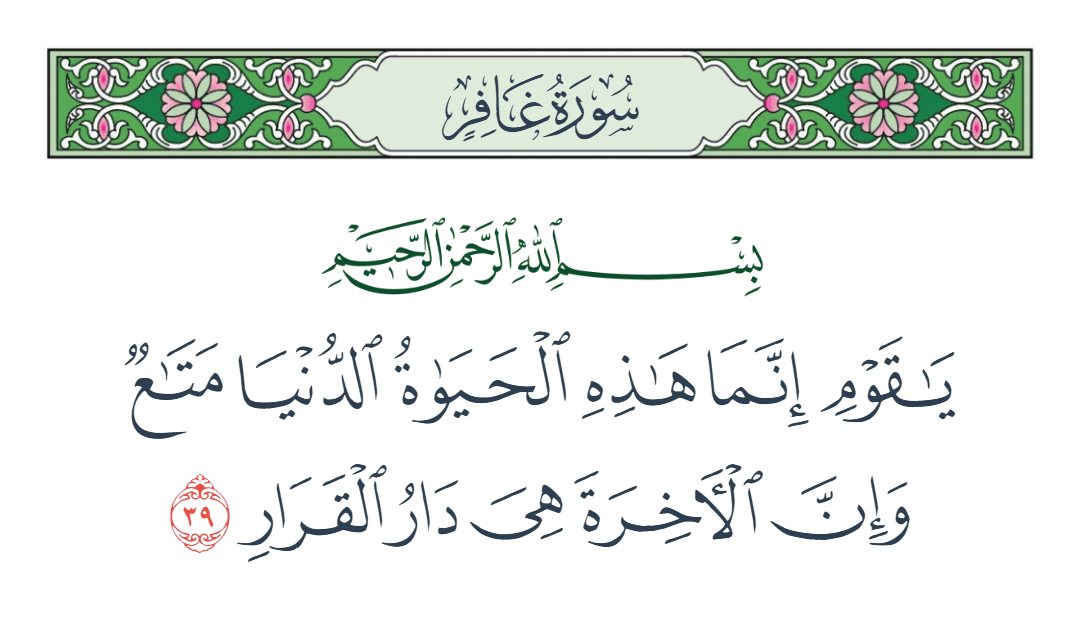 سُورَةُ غَافِرٍ
بِسْمِ ٱللَّهِ ٱلرَّحْمَٰنِ ٱلرَّحِيمِ
يَٰقَوْمِ إِنَّمَا هَٰذِهِ ٱلْحَيَوٰةُ ٱلدُّنْيَا مَتَٰعٌ
وَإِنَّ ٱلْأَخِرَةَ هِىَ دَارُ ٱلْقَرَارِ ٣٩